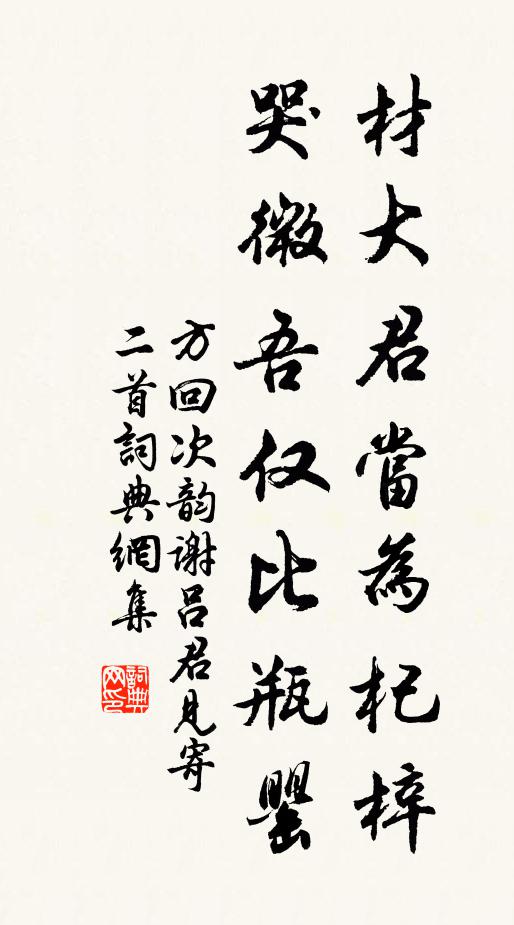 材大君當為杞梓
器微吾仅比瓶罂
方回次韵谢吕君見寄
二首詞典網集
詞典网印